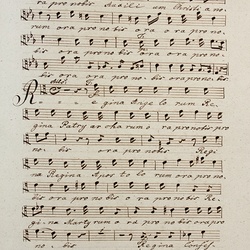 ra pro nobis Auxili um Christi a no.
rum ora pro nobis o ra o ra pro no.
bis ora pro nobis ora pro no bis
bis ora ora pro no. bis ora pro no. bis.
Re e gina Ange lo rum Re.
gina Patry ar cha rum o ra pro nobis pro
no. bis ora pro nobis Regi
na Regina Apos to lo rum ora pro no.
bis ora pro nobis ora pro no bis Re
gi. na Martyrum o ra pro no bis ora pro
no. bis Regina Confes.